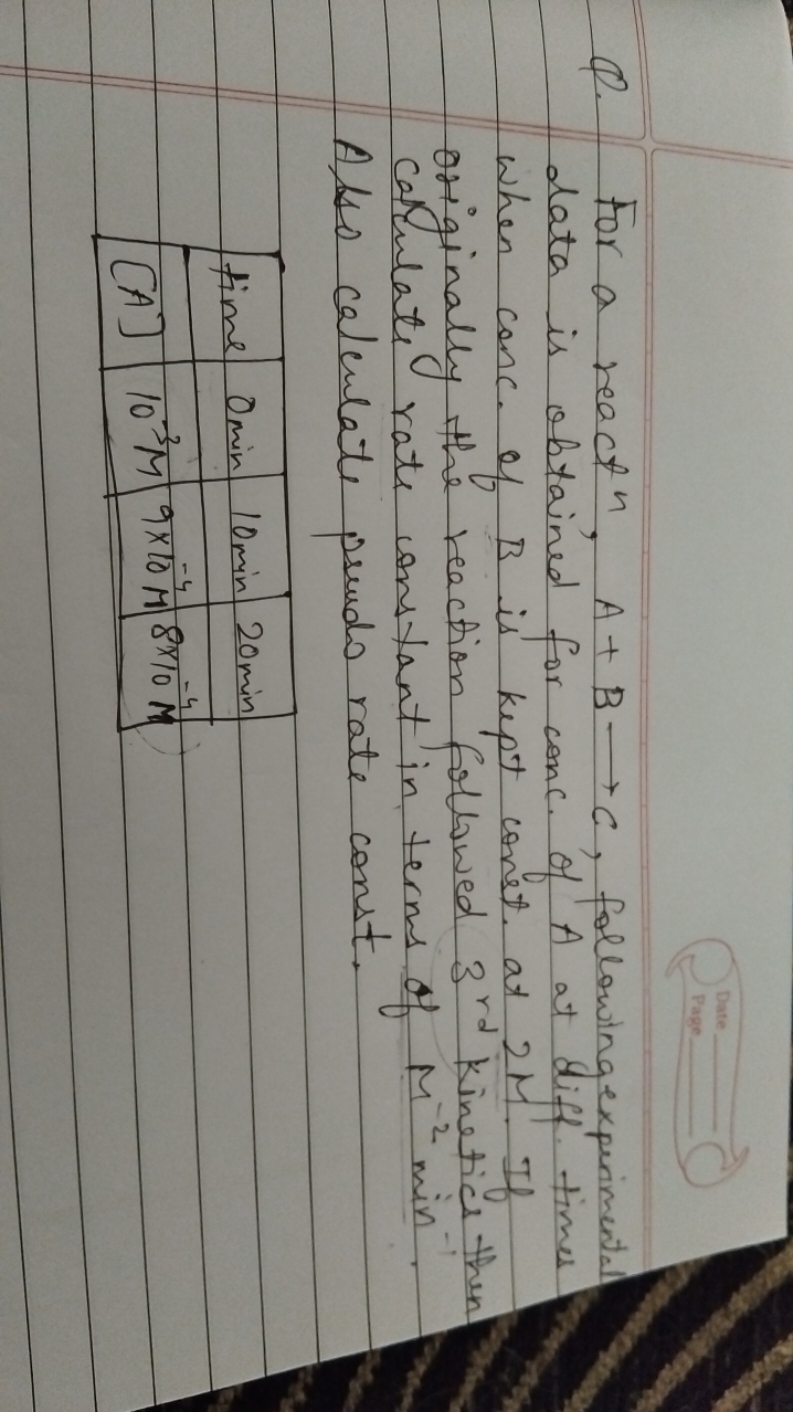 Date
Page
Q. For a reactⁿ, A + B → C, following experimental
data is obtained for conc. of A at diff. times
when conc. of B is kept const. at 2M. If
originally the reaction followed 3rd kinetics then
calculate rate constant in terms of M⁻² min⁻¹.
Also calculate pseudo rate const.
time 0min 10min 20min
[A] 10⁻³M 9×10⁻⁴M 8×10⁻⁴M